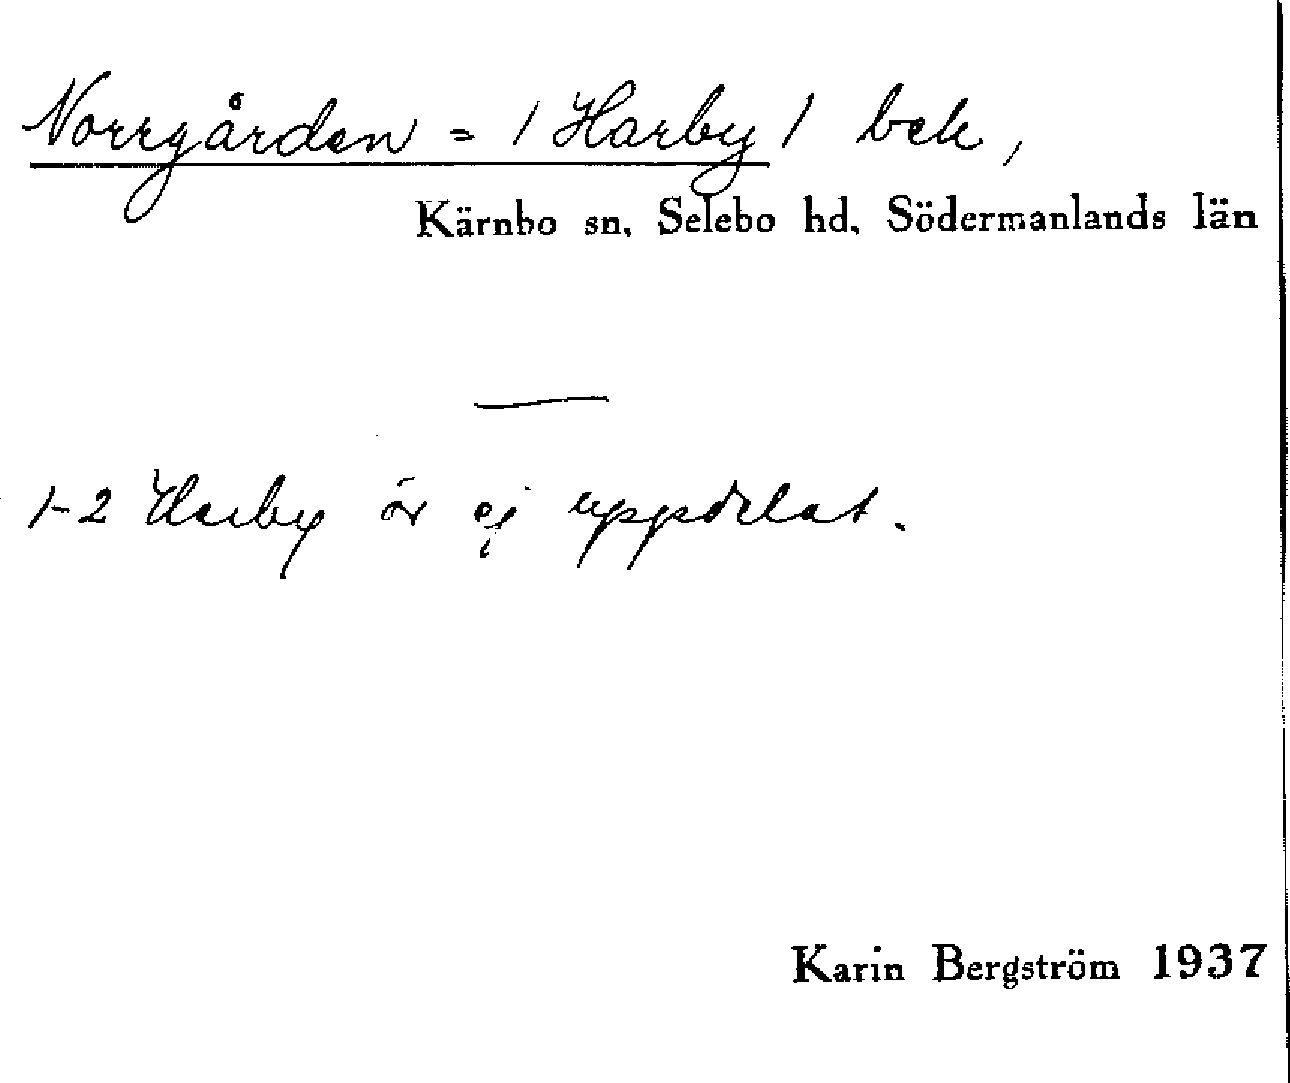 Norrgården = / Harby / beb,
Kärnbo sn, Selebo hd, Södermanlands län
1-2 Harby är ej uppdelat.
Karin Bergström 1937